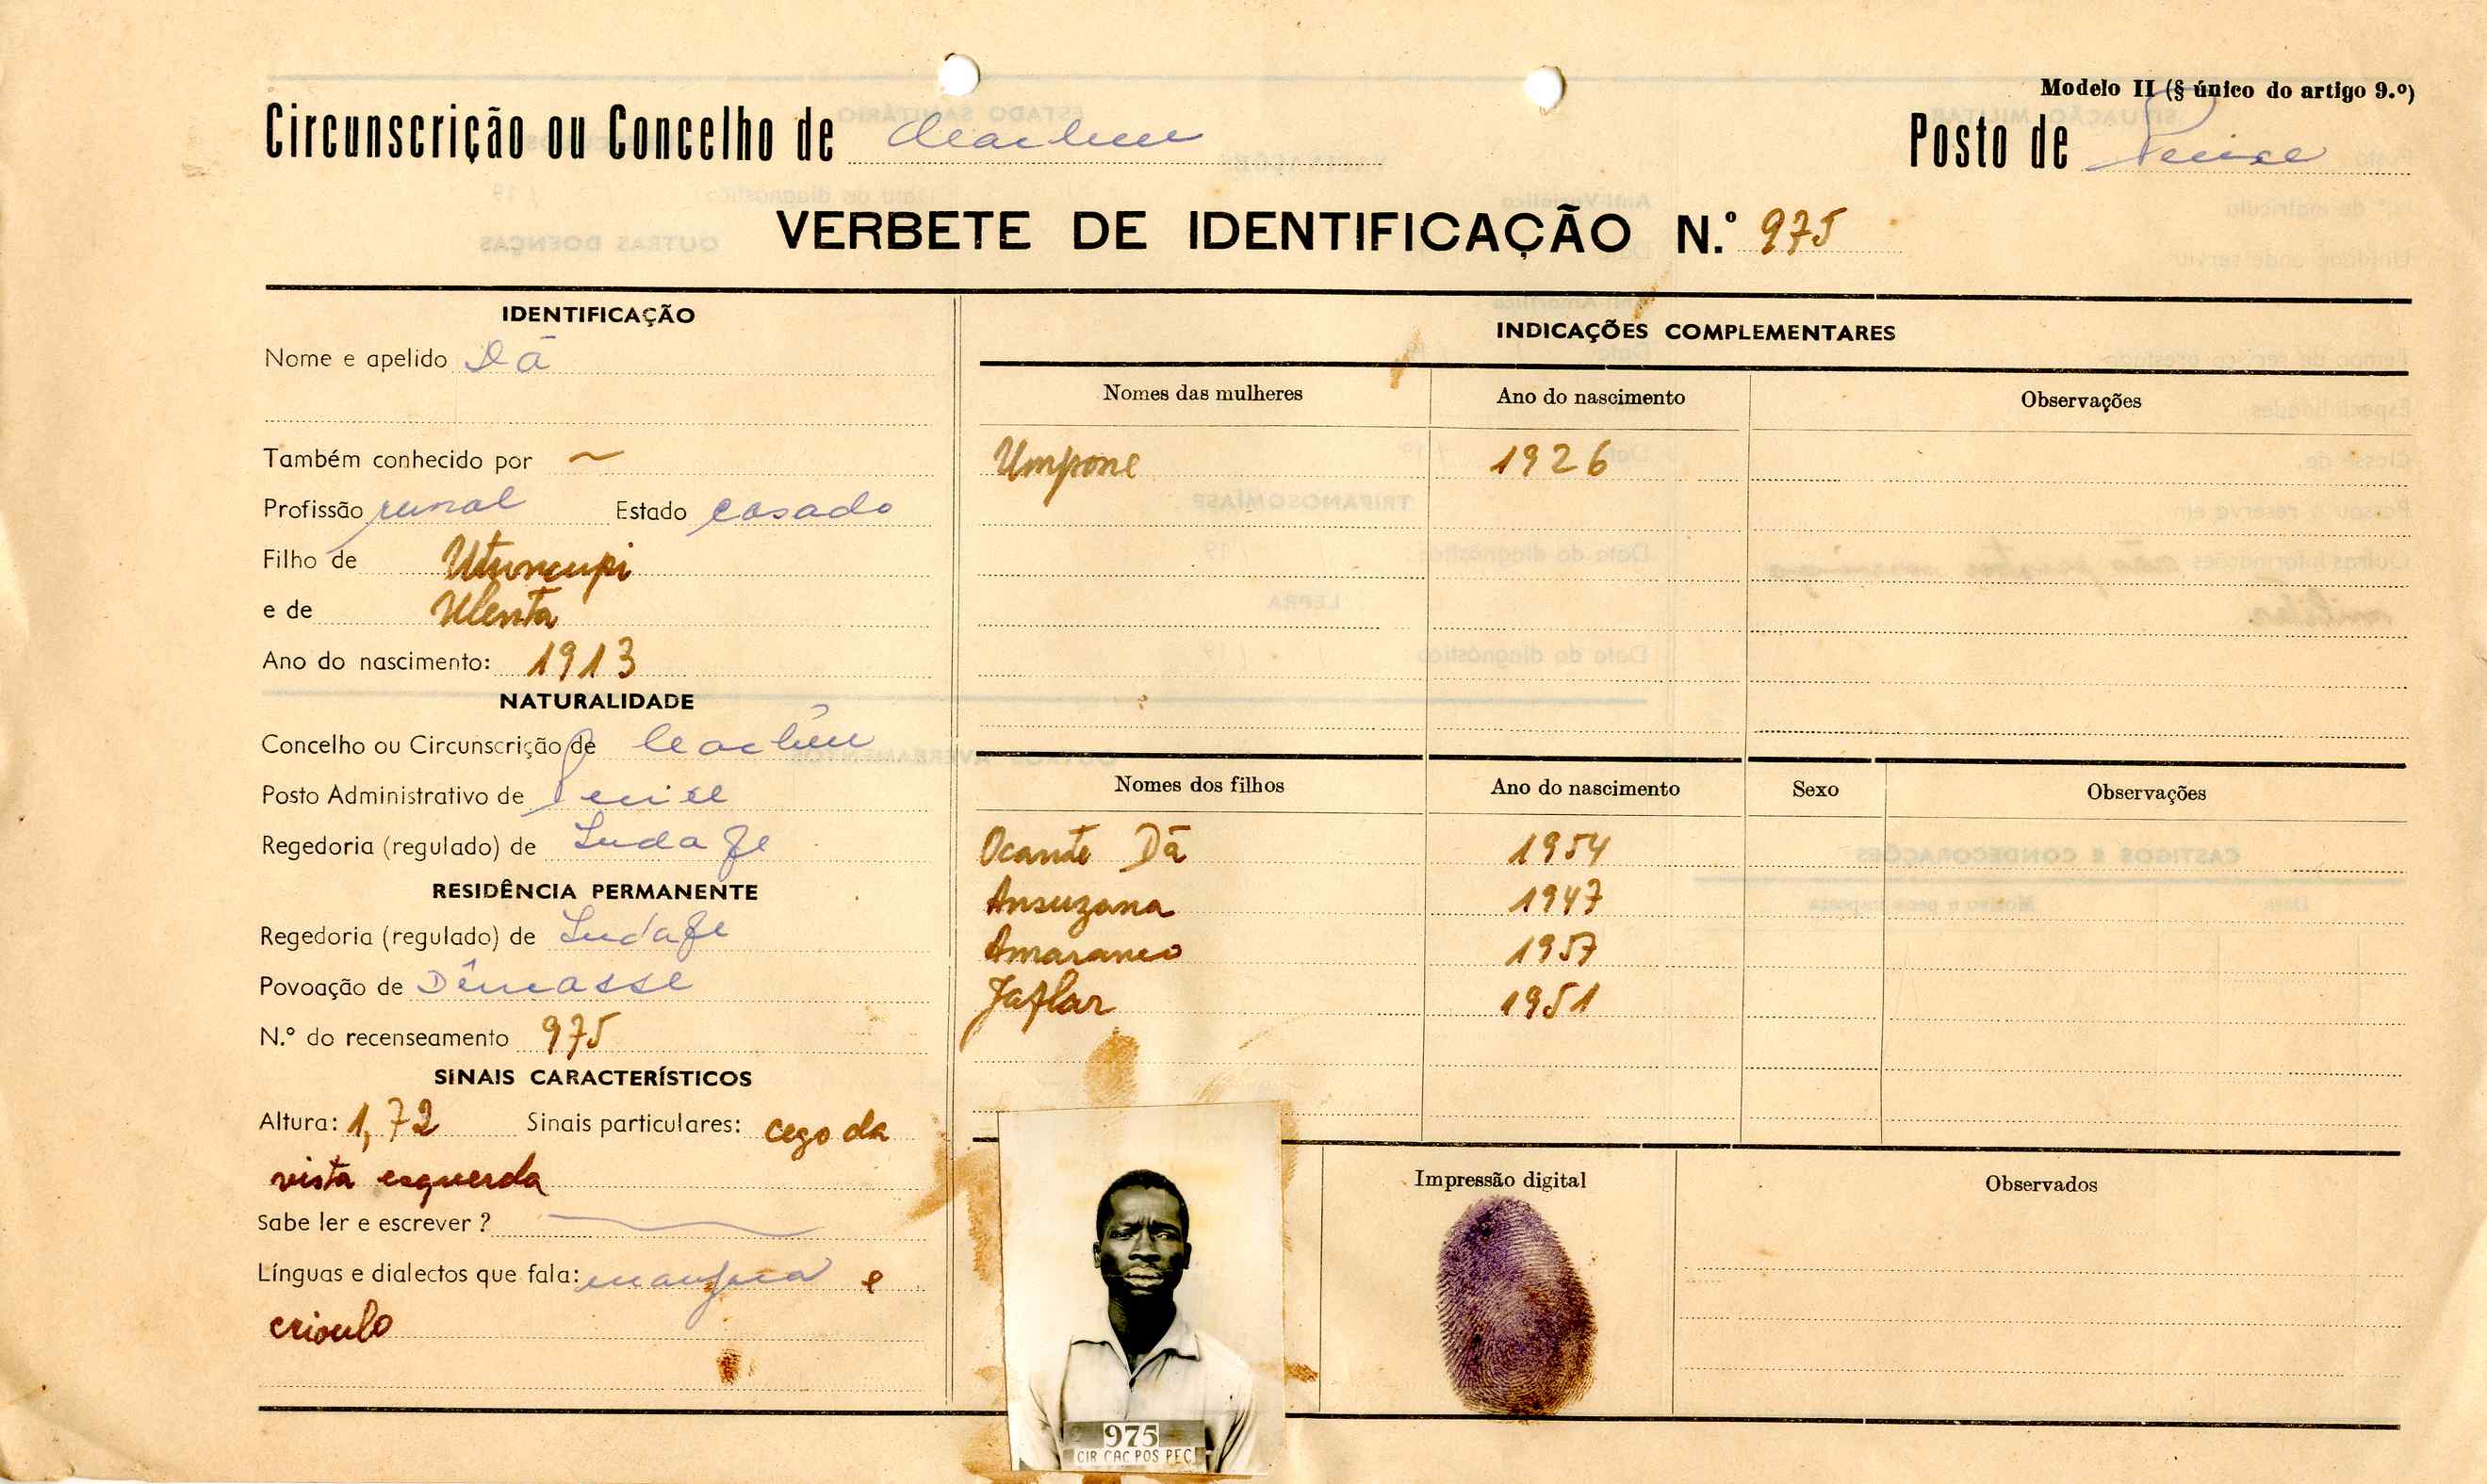 Modelo II (§ único do artigo 9.º)
Circunscrição ou Concelho de Cacheu
Posto de
VERBETE DE IDENTIFICAÇÃO N.º 975
IDENTIFICAÇÃO
Nome e apelido Dã
Também conhecido por ~
Profissão rural Estado casado
Filho de
e de Ulenta
Ano do nascimento: 1913
NATURALIDADE
Concelho ou Circunscrição de Cacheu
Posto Administrativo de
Regedoria (regulado) de
RESIDÊNCIA PERMANENTE
Regedoria (regulado) de
Povoação de
N.º do recenseamento 975
SINAIS CARACTERÍSTICOS
Altura: 1,72 Sinais particulares: cego da
vista esquerda
Sabe ler e escrever ?
Línguas e dialectos que fala: e
crioulo
INDICAÇÕES COMPLEMENTARES
Nomes das mulheres Ano do nascimento Observações
Umpone 1926
Nomes dos filhos Ano do nascimento Sexo Observações
Ocante Dã 1954
Ansuzana 1947
1957
Jaflar 1951
Impressão digital
Observados
975
CIR CAC POS PEC